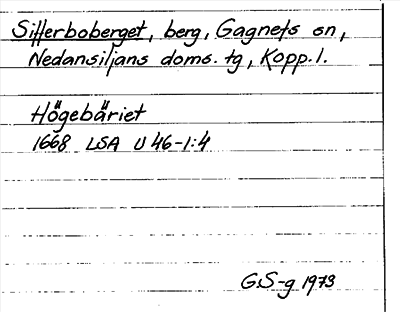 Sifferboberget, berg, Gagnefs sn,
Nedansiljans doms. tg, Kopp. l.
Högebäriet
1668 LSA U 46-1:4
G.S-g 1973